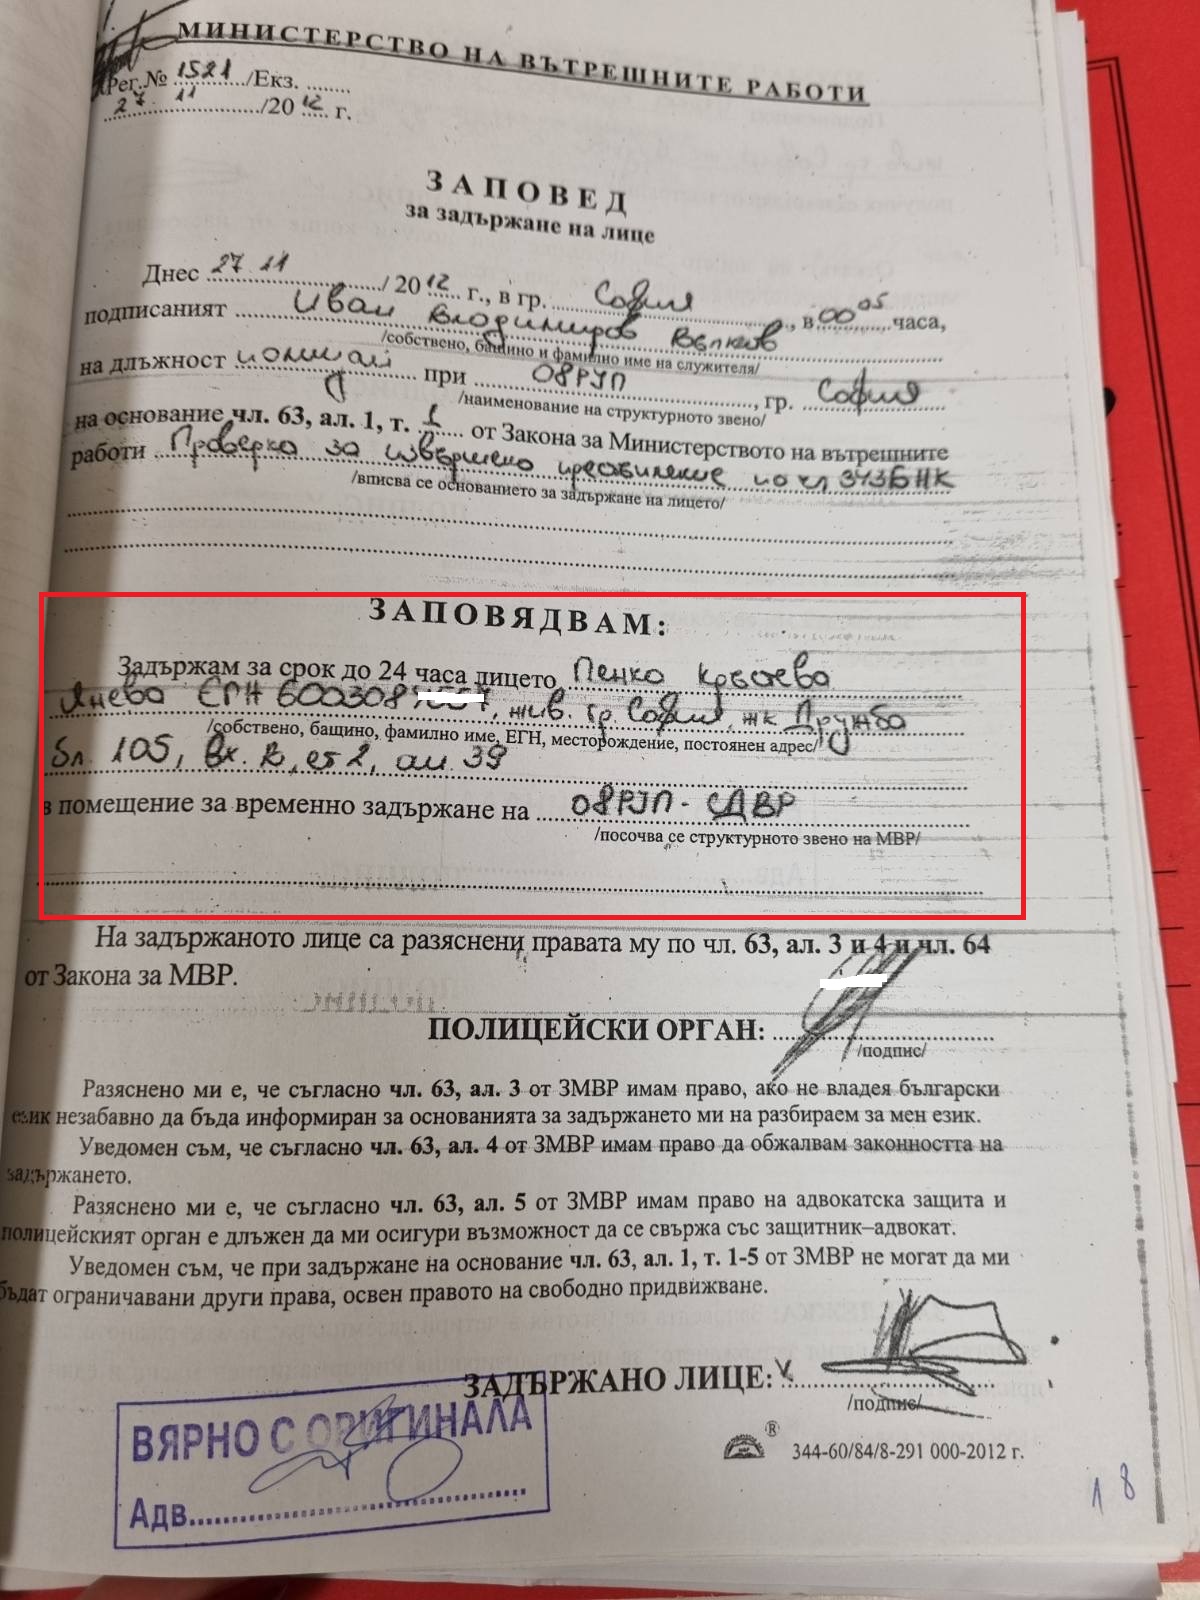 МИНИСТЕРСТВО НА ВЪТРЕШНИТЕ РАБОТИ
Рег.№ 1521 /Екз. ........
27. 11 /2012 г.
ЗАПОВЕД
за задържане на лице
Днес 27 11 / 2012 г., в гр. София, в 00 05 часа,
подписаният Иван Владимиров Вълков
/собствено, бащино и фамилно име на служителя/
на длъжност полицай при 08РУП, гр. София
/наименование на структурното звено/
на основание чл. 63, ал. 1, т. 1 от Закона за Министерството на вътрешните
работи Проверка за извършено престъпление по чл 343Б НК
/вписва се основанието за задържане на лицето/
ЗАПОВЯДВАМ:
Задържам за срок до 24 часа лицето Пенка Кръстева
Янева ЕГН 600308, жив. гр. София, жк Дружба
/собствено, бащино, фамилно име, ЕГН, месторождение, постоянен адрес/
бл. 105, вх. В, ет 2, ап. 39
в помещение за временно задържане на 08РУП - СДВР
/посочва се структурното звено на МВР/
На задържаното лице са разяснени правата му по чл. 63, ал. 3 и 4 и чл. 64
от Закона за МВР.
ПОЛИЦЕЙСКИ ОРГАН:
/подпис/
Разяснено ми е, че съгласно чл. 63, ал. 3 от ЗМВР имам право, ако не владея български
език незабавно да бъда информиран за основанията за задържането ми на разбираем за мен език.
Уведомен съм, че съгласно чл. 63, ал. 4 от ЗМВР имам право да обжалвам законността на
задържането.
Разяснено ми е, че съгласно чл. 63, ал. 5 от ЗМВР имам право на адвокатска защита и
полицейският орган е длъжен да ми осигури възможност да се свържа със защитник–адвокат.
Уведомен съм, че при задържане на основание чл. 63, ал. 1, т. 1-5 от ЗМВР не могат да ми
бъдат ограничавани други права, освен правото на свободно придвижване.
ЗАДЪРЖАНО ЛИЦЕ:
/подпис/
ВЯРНО С ОРИГИНАЛА
Адв.
® 344-60/84/8-291 000-2012 г.
18